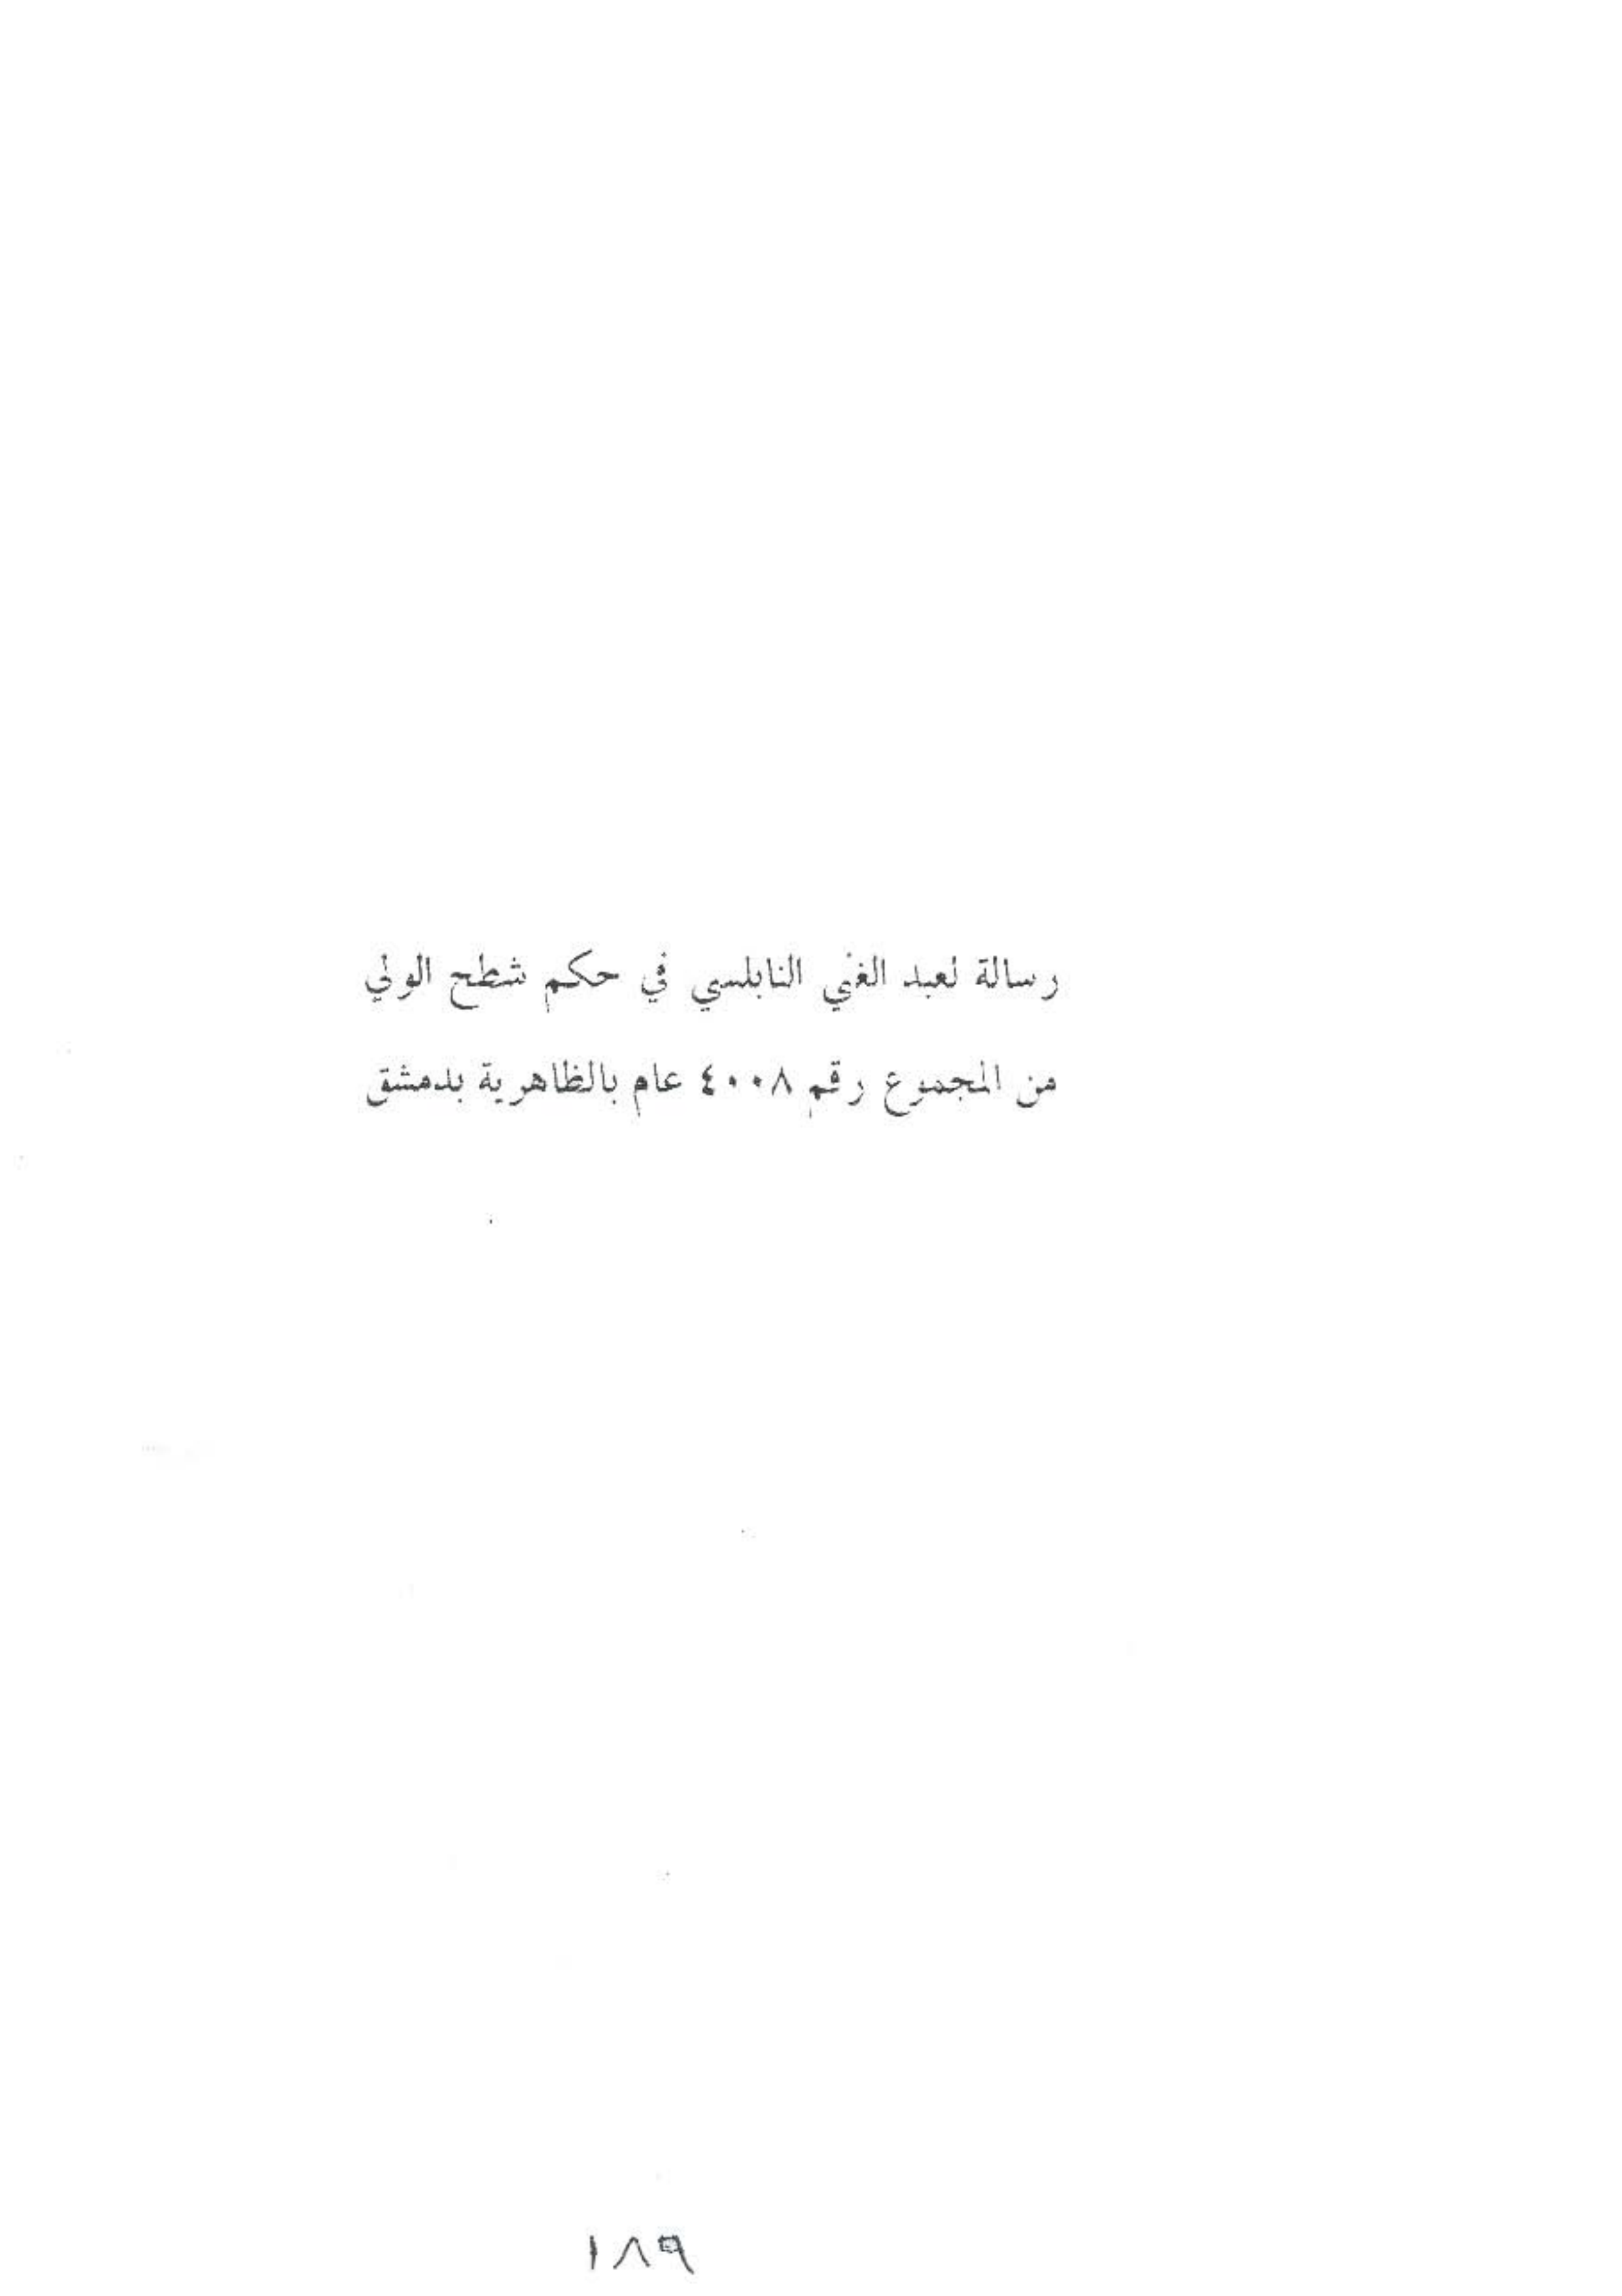 رسالة لعبد الغني النابلسي في حكم شطح الولي
من المجموع رقم ٤٠٠٨ عام بالظاهرية بدمشق
١٨٩